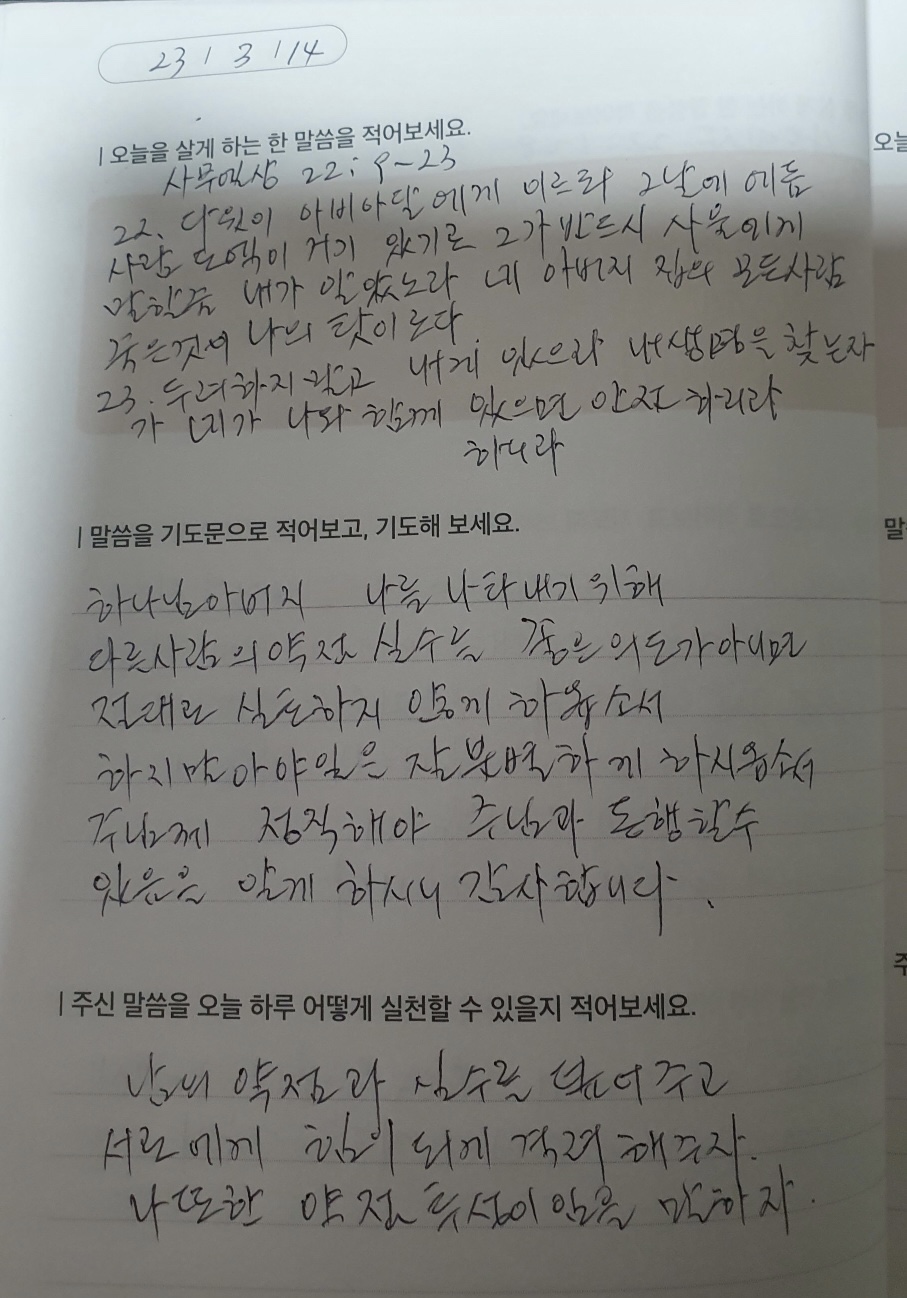 23 / 3 / 14
| 오늘을 살게 하는 한 말씀을 적어보세요.
사무엘상 22 : 9 ~ 23
22. 다윗이 아비아달에게 이르되 그날에 에돔
사람 도엑이 거기 있기로 그가 반드시 사울에게
말할줄 내가 알았노라 네 아버지 집의 모든사람
죽은것이 나의 탓이로다
23. 두려하지 말고 내게 있으라 내생명을 찾는자
가 네가 나와 함께 있으면 안전하리라
하니라
| 말씀을 기도문으로 적어보고, 기도해 보세요.
하나님아버지 나를 나타내기 위해
다른사람의 약점 실수를 좋은 의도가 아니면
절대로 하지 않게 하옵소서
하지말아야일은 잘 분별하게 하시옵소서
주님께 정직해야 주님과 동행할수
있음을 알게 하시니 감사합니다.
| 주신 말씀을 오늘 하루 어떻게 실천할 수 있을지 적어보세요.
남의 약점과 실수를 덮어주고
서로에게 힘이 되게 격려해주자.
나 또한 약점 투성이임을 말하자.
오늘
말
주